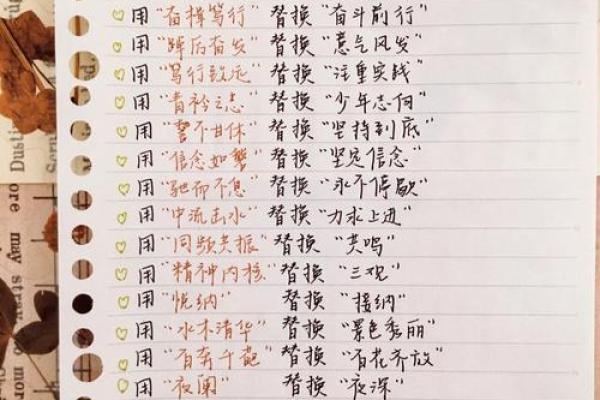 用“奋楫笃行” 替换“奋斗前行”
用“踔厉奋发” 替换“意气风发”
用“笃行致远” 替换“注重实践”
用“青衿之志” 替换“少年志向”
用“誓不甘休” 替换“坚持到底”
用“信念如磐” 替换“坚定信念”
用“驰而不息” 替换“永不停歇”
用“中流击水” 替换“力求上进”
用“同频共振” 替换“共鸣”
用“精神内核” 替换“三观”
用“悦纳” 替换“接纳”
用“水木清华” 替换“景色秀丽”
用“百卉千葩” 替换“百花齐放”
用“夜阑” 替换“夜深”
Dusti
more may stray